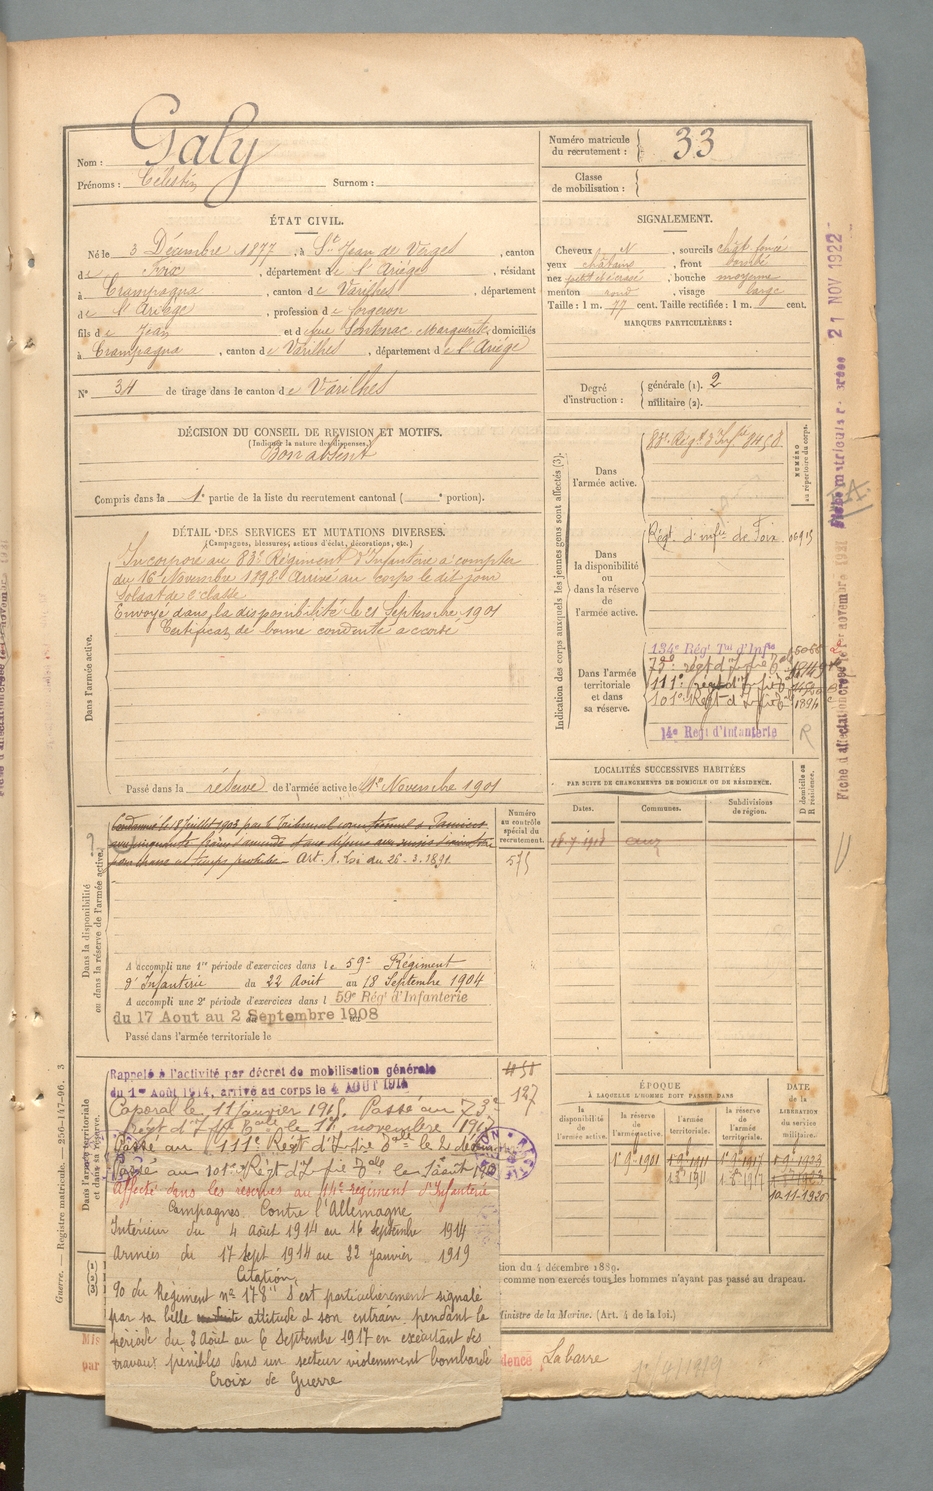 Nom : Galy
Prénoms : Célestin Surnom :
Numéro matricule
du recrutement : 33
Classe
de mobilisation :
ÉTAT CIVIL.
Né le 3 Décembre 1877, à St Jean de Verges, canton
de Foix, département de l'Ariège, résidant
à Crampagna, canton de Varilhes, département
de l'Ariège, profession de forgeron
fils de Jean et de feue Marguerite, domiciliés
à Crampagna, canton de Varilhes, département de l'Ariège
N° 34 de tirage dans le canton de Varilhes
SIGNALEMENT.
Cheveux N, sourcils chât. foncé
yeux châtains, front bombé
nez, bouche moyenne
menton rond, visage large
Taille : 1 m. 77 cent. Taille rectifiée : 1 m. cent.
MARQUES PARTICULIÈRES :
Degré
d'instruction :
générale (1). 2
militaire (2).
DÉCISION DU CONSEIL DE REVISION ET MOTIFS.
(Indiquer la nature des dispenses.)
Bon absent
Compris dans la 1e partie de la liste du recrutement cantonal ( e portion).
DÉTAIL DES SERVICES ET MUTATIONS DIVERSES.
(Campagnes, blessures, actions d'éclat, décorations, etc.)
Dans l'armée active.
Incorporé au 83e Régiment d'Infanterie à compter
du 16 Novembre 1898. Arrivé au corps le dit jour
Soldat de 2e classe
Envoyé dans la disponibilité le 21 Septembre 1901
Certificat de bonne conduite accordé
Passé dans la réserve de l'armée active le 1er Novembre 1901
Indication des corps auxquels les jeunes gens sont affectés (3).
NUMÉRO
au répertoire du corps.
Dans
l'armée active.
83e Rég. d'Inf.
Dans
la disponibilité
ou
dans la réserve
de
l'armée active.
Régt d'infie de Foix
Dans l'armée
territoriale
et dans
sa réserve.
134e Rég Tal d'Infie
73e régt d'Infie Tale
111e régt d'Infie
101e Régt d'Infie
14e Regt d'Infanterie
R
Dans la disponibilité
ou dans la réserve de l'armée active.
Condamné le 18 Juillet 1903 par le Tribunal
Art. 1. Loi du 26-3-1891
Numéro
au contrôle
spécial du
recrutement.
575
A accompli une 1re période d'exercices dans le 59e Régiment
d'Infanterie du 22 Août au 18 Septembre 1904
A accompli une 2e période d'exercices dans l 59e Rég d'Infanterie
du 17 Aout au 2 Septembre 1908
Passé dans l'armée territoriale le
LOCALITÉS SUCCESSIVES HABITÉES
PAR SUITE DE CHANGEMENTS DE DOMICILE OU DE RÉSIDENCE.
Dates.
Communes.
Subdivisions
de région.
D domicile ou
R résidence.
Dans l'armée territoriale
et dans sa réserve.
127
Rappelé à l'activité par décret de mobilisation générale
du 1er Août 1914, arrivé au corps le 4 AOUT 1914
Caporal le 11 janvier 1915. Passé au 73e
régt d'Infie Tale le 11 novembre
Passé au 111e Régt d'Infie Tale le 2
Passé au 101e Régt d'Infie Tale le 1 août
Affecté dans les réserves au 14e régiment d'Infanterie
Campagnes Contre l'Allemagne
Intérieur du 4 Août 1914 au 16 septembre 1914
Armées du 17 sept 1914 au 22 Janvier 1919
Citation
Régiment n° 178 "S'est particulièrement signalé
par sa belle attitude et son entrain, pendant la
période du 2 Août au 6 Septembre 1917 en exécutant des
travaux pénibles dans un secteur violemment bombardé
Croix de Guerre
ÉPOQUE
À LAQUELLE L'HOMME DOIT PASSER DANS
la
disponibilité
de
l'armée active.
la réserve
de
l'armée active.
l'armée
territoriale.
la réserve
de
l'armée
territoriale.
DATE
de la
LIBÉRATION
du service
militaire.
1e 9bre 1901
10-11-1920
tion du 4 décembre 1889.
comme non exercés tous les hommes n'ayant pas passé au drapeau.
Ministre de la Marine. (Art. 4 de la loi.)
Labarre
Guerre. — Registre matricule. — 256-147-96. 3
21 NOV 1922